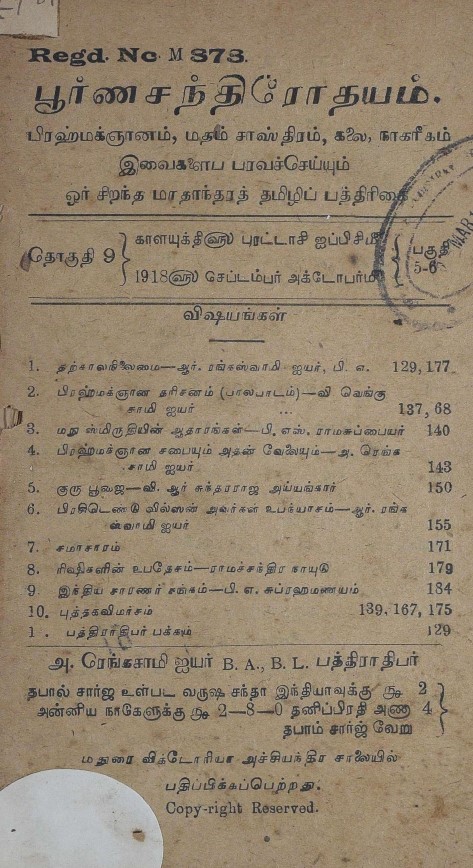 Regd. No M 873.
பூர்ணசந்திரோதயம்.
பிரஹ்மக்ஞானம், மதம் சாஸ்திரம், கலை, நாகரீகம்
இவைகளைப் பரவச்செய்யும்
ஓர் சிறந்த மாதாந்தரத் தமிழ்ப் பத்திரிகை
தொகுதி 9
காளயுக்தி௵ புரட்டாசி ஐப்பிசிமீ
1918௵ செப்டம்பர் அக்டோபர்மீ
பகுதி
5-6
விஷயங்கள்
1. தற்காலநிலைமை—ஆர். ரங்கஸ்வாமி ஐயர், பி. எ. 129, 177
2. பிரஹ்மக்ஞான தரிசனம் (பாலபாடம்)—வி வெங்கு
சாமி ஐயர் ... 137, 68
3. மநு ஸ்மிருதியின் ஆதாரங்கள்—பி. எஸ். ராமசுப்பையர் 140
4. பிரஹ்மக்ஞான சபையும் அதன் வேலையும்—அ. ரெங்க
சாமி ஐயர் 143
5. குரு பூஜை—வி. ஆர் சுந்தரராஜ அய்யங்கார் 150
6. பிரசிடெண்டு வில்ஸன் அவர்கள் உபந்யாசம்—ஆர். ரங்க
ஸ்வாமி ஐயர் 155
7. சமாசாரம் 171
8. ரிஷிகளின் உபதேசம்—ராமச்சந்திர நாயுடு 179
9. இந்திய சாரணர் சங்கம்—பி. எ. சுப்ரஹ்மணயம் 184
10. புத்தகவிமர்சம் 139, 167, 175
1 . பத்திராதிபர் பக்கம் 129
அ. ரேங்கசாமி ஐயர் B. A., B. L. பத்திராதிபர்
தபால் சார்ஜ் உள்பட வருஷ சந்தா இந்தியாவுக்கு ரூ 2
அன்னிய நாகேளுக்கு ரூ 2—8—0 தனிப்பிரதி அணா 4
தபாம் சார்ஜ் வேறு
மதுரை விக்டோரியா அச்சியந்திர சாலையில்
பதிப்பிக்கப்பெற்றது.
Copy-right Reserved.